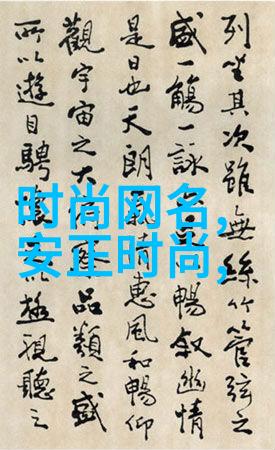 列坐其次雖無絲竹管弦之
盛一觴一詠暢敘幽情
是日也天朗清惠風和暢仰
觀宇宙之大品類之盛
所以遊目騁以極視聽之
时尚网名,
安正时尚,